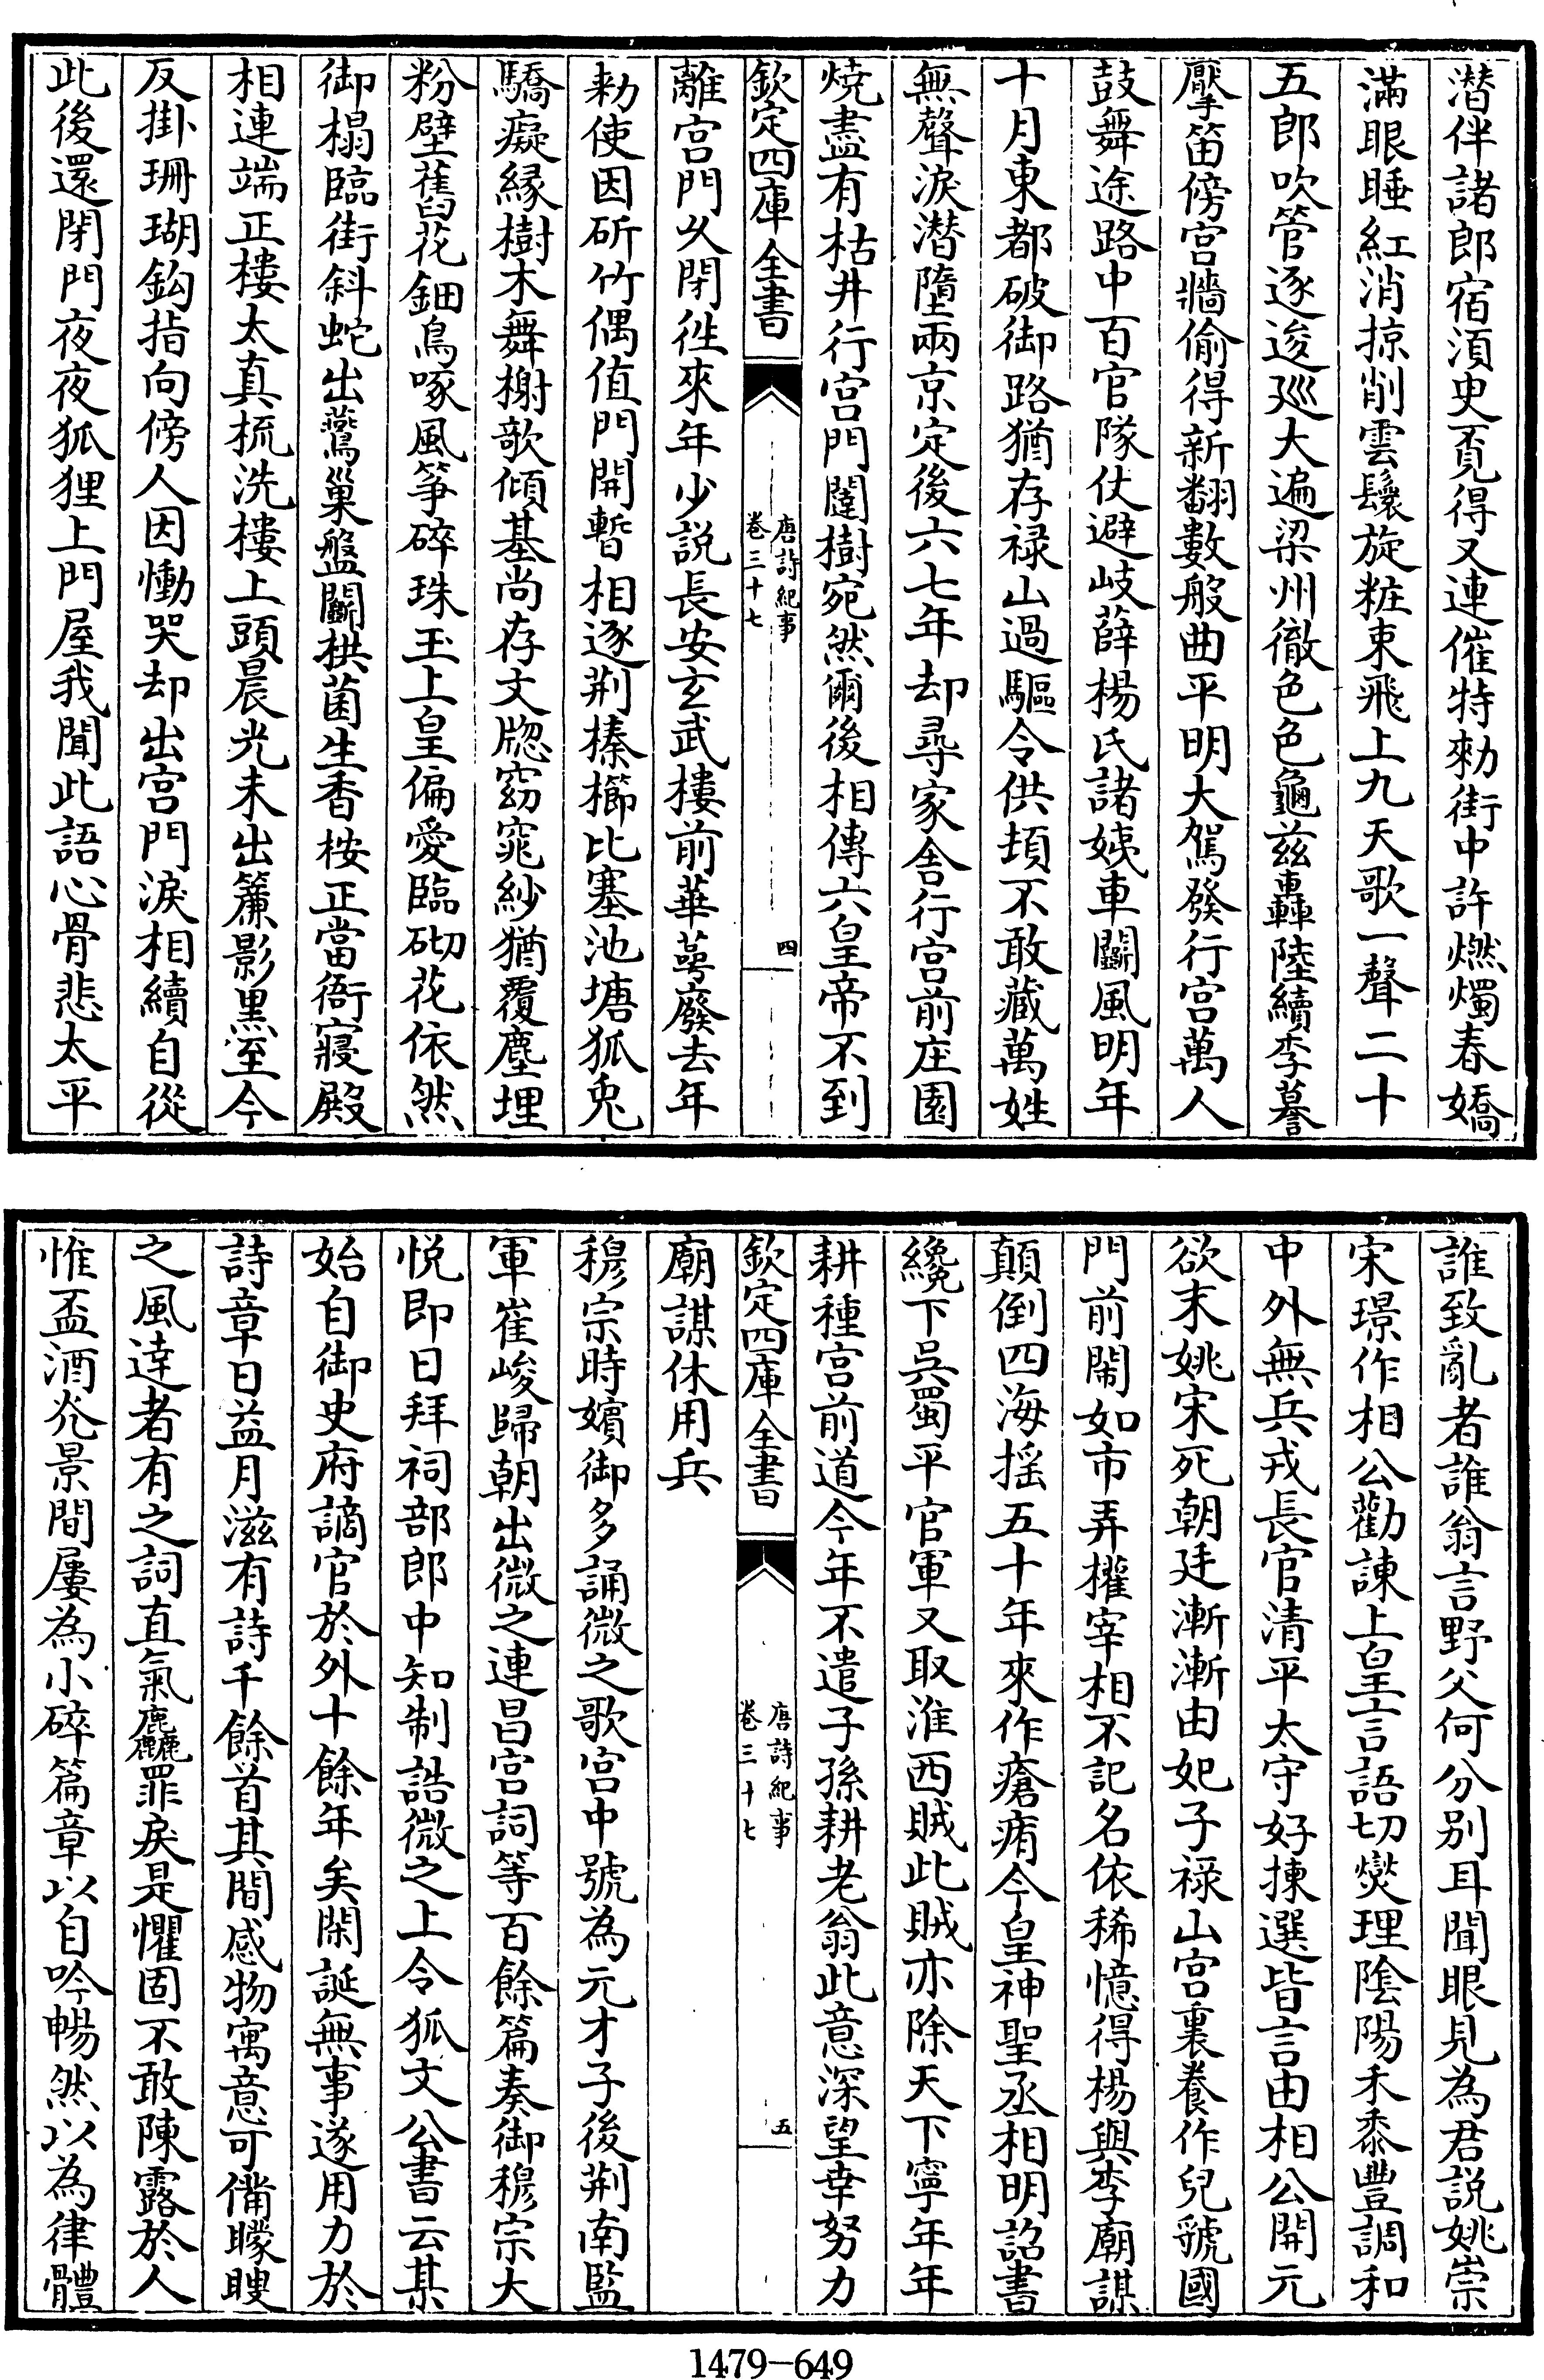 潜伴諸郎宿須臾覔得又連催特勑街中許燃燭春嬌
滿眼睡紅消掠削雲鬟旋粧束飛上九天歌一聲二十
五郎吹管逐逡廵大遍梁州徹色色龜茲轟陸續李謩
擪笛傍宫牆偷得新翻數般曲平明大駕發行宫萬人
鼓舞途路中百官隊仗避岐薛楊氏諸姨車鬭風明年
十月東都破御路猶存禄山過驅令供頓不敢藏萬姓
無聲淚潜墮兩京定後六七年却尋家舍行宫前庄園
焼盡有枯井行宫門闥樹宛然爾後相傳六皇帝不到
欽定四庫全書
唐詩紀事
卷三十七
四
離宫門乆閉徃來年少説長安玄武樓前華蕚廢去年
勑使因斫竹偶值門開暫相逐荆榛櫛比塞池塘狐兎
驕癡縁樹木舞榭欹傾基尚存文牎窈窕紗猶覆塵埋
粉壁舊花鈿鳥啄風筝碎珠玉上皇偏愛臨砌花依然
御榻臨街斜蛇出鷰巢盤鬭栱菌生香桉正當衙寢殿
相連端正樓太真梳洗樓上頭晨光未出簾影黒至今
反掛珊瑚鈎指向傍人因慟哭却出宫門淚相續自從
此後還閉門夜夜狐狸上門屋我聞此語心骨悲太平
誰致亂者誰翁言野父何分别耳聞眼見為君説姚崇
宋璟作相公勸諫上皇言語切爕理陰陽禾黍豐調和
中外無兵戎長官清平太守好揀選皆言由相公開元
欲末姚宋死朝廷漸漸由妃子禄山宫裏養作兒虢國
門前閙如市弄權宰相不記名依稀憶得楊與李廟謀
顛倒四海摇五十年來作瘡痏今皇神聖丞相明詔書
纔下吳蜀平官軍又取淮西賊此賊亦除天下寧年年
耕種宫前道今年不遣子孫耕老翁此意深望幸努力
欽定四庫全書
唐詩紀事
卷三十七
五
廟謀休用兵
穆宗時嬪御多誦微之歌宫中號為元才子後荆南監
軍崔峻歸朝出微之連昌宫詞等百餘篇奏御穆宗大
悦即日拜祠部郎中知制誥微之上令狐文公書云某
始自御史府謫官於外十餘年矣閑誕無事遂用力於
詩章日益月滋有詩千餘首其間感物寓意可備矇瞍
之風逹者有之詞直氣麤罪戾是懼固不敢陳露於人
惟盃酒光景間屢為小碎篇章以自吟暢然以為律體
1479-649